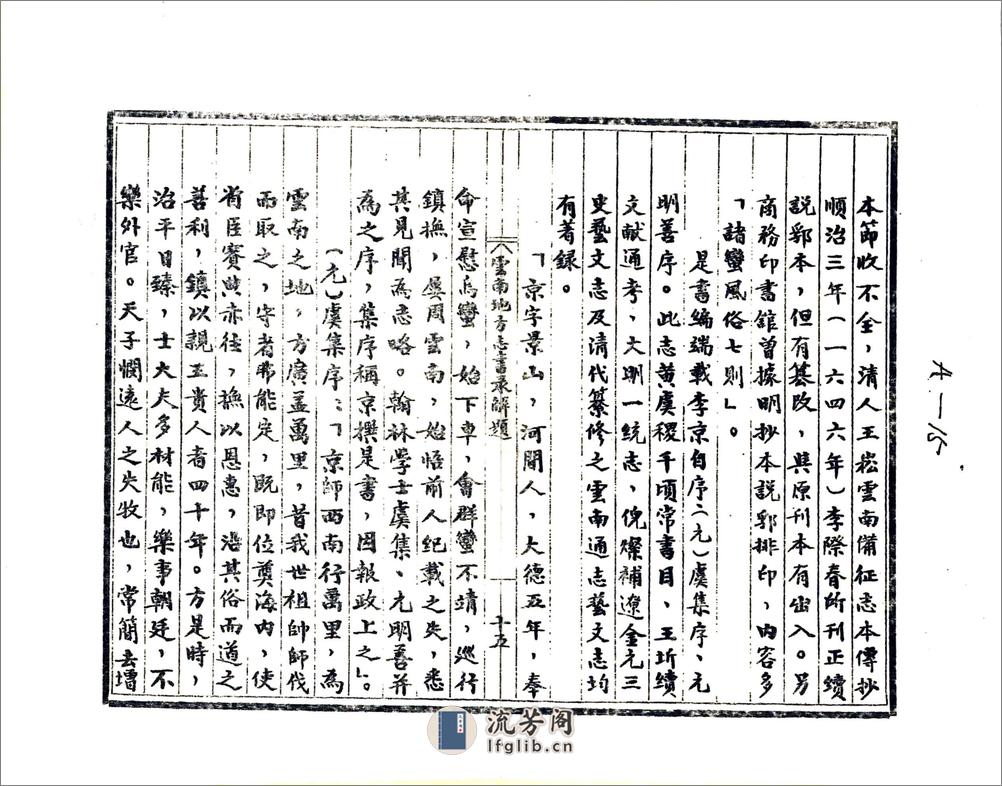 本節收不全，清人王崧雲南備征志本傳抄
順治三年（一六四六年）李際春所刊正續
說郛本，但有纂改，與原刊本有出入。另
商務印書館曾據明抄本說郛排印，內容多
「諸蠻風俗七則」。
是書編端載李京自序（元）虞集序、元
明善序。此志黃虞稷千頃常書目、王圻續
文献通考、文明一統志，倪燦補遼金元三
史藝文志及清代纂修之雲南通志藝文志均
有著録。
「京字景山，河間人，大德五年，奉
雲南地方志書录解題
十五
命宣慰烏蠻，始下車，會群蠻不靖，巡行
鎮撫，屢周雲南，始悟前人紀載之失，悉
其見聞為志略。翰林學士虞集、元明善并
為之序，集序稱京撰是書，因報政上之」。
（元）虞集序：「京師西南行萬里，為
雲南之地，方廣盖萬里，昔我世祖帥師伐
而取之，守者弗能定，既即位奠海内，使
省臣賽典赤往，撫以恩惠，沿其俗而道之
善利，鎮以親王貴人者四十年。方是時，
治平日臻，士大夫多材能，樂事朝廷，不
樂外官。天子憫遠人之失牧也，常簡去增
A—15
流芳阁
lfglib.cn